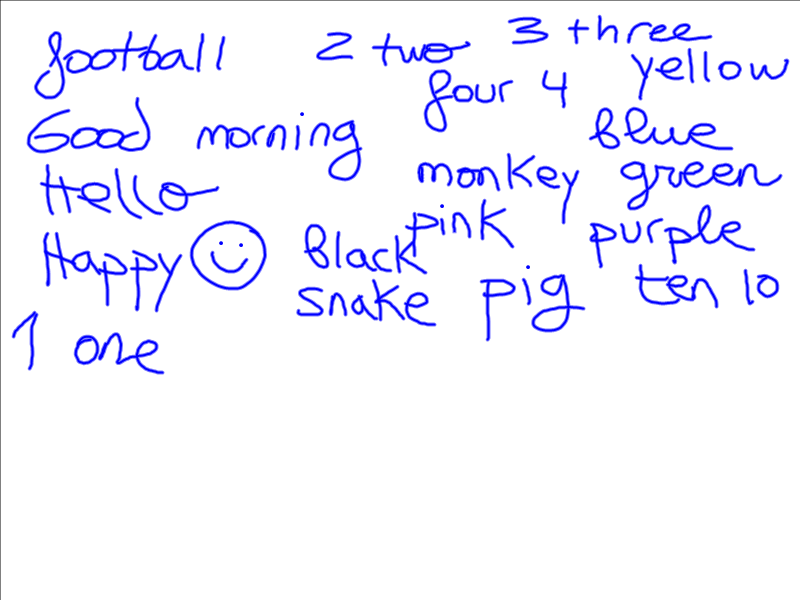 football 2 two 3 three
four 4 yellow
Good morning blue
Hello monkey green
Happy black pink purple
snake pig ten 10
1 one